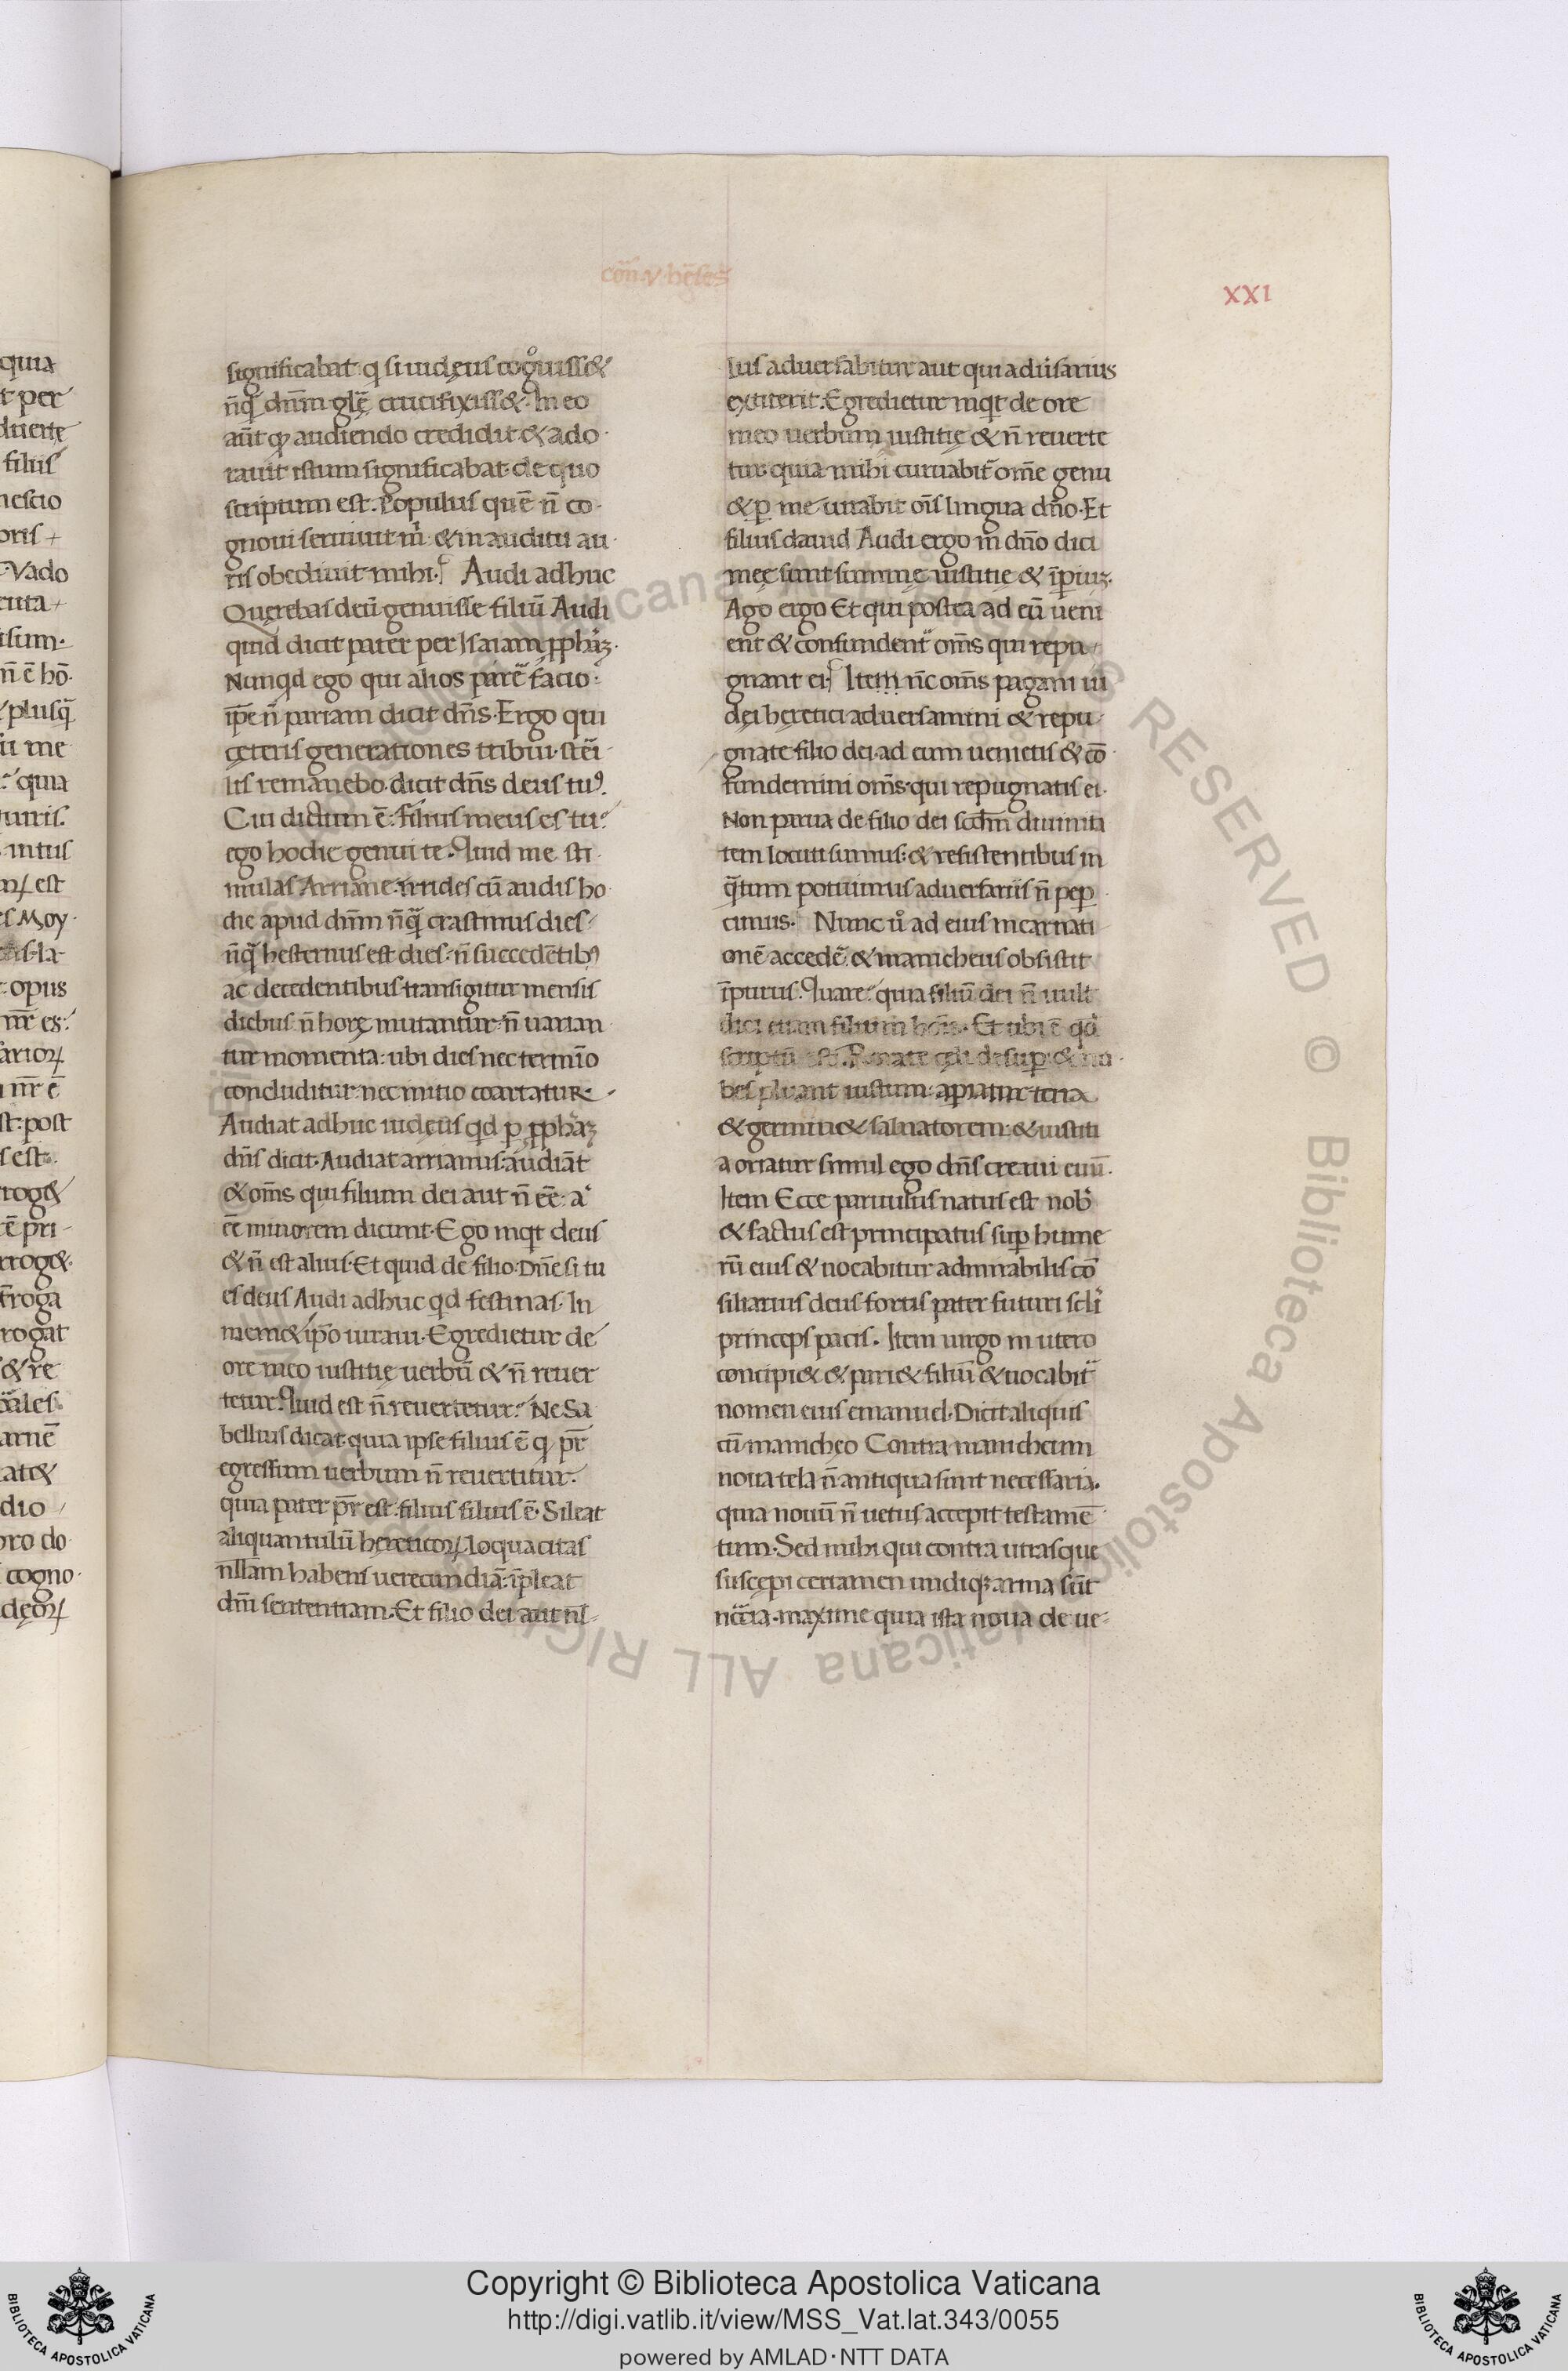 con̄. v. hęͬses
XXI
significabat. q si iudęus cog̊uiss&
n̄q̨ dn̄m glę̄ crucifixiss&. In eo
aūt qͥ audiendo credidit. & ado
rauit istum significabat. de quo
scriptum est. Populus quē n̄ co
gnoui seruiuit m̓. & in auditu au
ris obediuit mihi. Audi adhuc
Quęrebas deū genuisse filiū Audi
quid dicit pater per Isaiam ꝓphāꝫ.
Nunqd ego qui alios parē facio:
ip̄e n̄ pariam dicit dn̄s. Ergo qui
cęteris generationes tribui. stēi
lis remanebo. dicit dn̄s deus tuꝰ.
Cui dictum ē. filius meus es tu:
ego hodie genui te. Quid me sti
mulas Arriane. irrides cū audis ho
die apud dn̄m n̄q̨ crastinus dies
n̄q̨ hesternus est dies. n̄ succedētibꝰ
ac decedentibus transigitur mensis
diebus. n̄ horę mutantur. n̄ uarian
tur momenta: ubi dies nec termīo
concluditur. nec initio coartatur.
Audiat adhuc iudęus qd ꝑ ꝓphāꝫ
dn̄s dicit. Audiat arrianus. audiāt
& om̄s qui filium dei aut n̄ ēe. a͛
ēe minorem dicunt. Ego inqt deus
& n̄ est alius. Et quid de filio. Dn̄e si tu
es deus Audi adhuc qd festinas. In
mem& ip̄o iuraui. Egredietur de
ore meo iustitię uerbū & n̄ reuer
tetur. Quid est n̄ reuertetur. Ne Sa
bellius dicat. quia ipse filius ē q̨ pr̄
egressum uerbum n̄ reuertitur.
quia pater pr̄ est. filius filius ē. Sileat
aliquantulū hęreticoꝝ loquacitas
nllam habens uerecundiā. īpleat
dn̄i sententiam. Et filio dei aut nl̄
lus aduersabitur aut qui adūsarius
extiterit. Egredietur inqt de ore
meo uerbum iustitię & n̄ reuerte
tur. quia mihi curuabit̄ om̄e genu
& ꝑ me iurabit om̄s lingua dn̄o. Et
filius dauid Audi ergo m̓ dn̄o dici
meę sunt summę iustitie & īperiuꝫ.
Ago ergo Et qui postea ad eū ueni
ent & confundent̄ om̄s qui repu
gnant ei. Item n̄c om̄s pagani iu
dęi hęretici aduersamini & repu
gnate filio dei. ad eum uenietis & cō
fundemini om̄s. qui repugnatis ei.
Non parua de filio dei scd̄m diuinita
tem locuti sumus. & resistentibus in
q̄tum potuimus aduersariis n̄ peꝑ
cimus. Nunc u̓o ad eius incarnati
onē accedē. & manicheus obsistit
īpurus. Quare: quia filiū dei n̄ uult
dici etiam filium hoīs. Et ubi ē qd̄
scriptū est. Rorate cęli desuꝑ. & nu
bes pluant iustum. aꝑiatur terra
& germin& saluatorem. & iustiti
a oriatur simul ego dn̄s creaui euū.
Item Ecce paruulus natus est nob̓
& factus est principatus suꝑ hume
rū eius & uocabitur admirabilis cō
siliarius deus fortis pater futuri scl̄i
princeps pacis. Item uirgo in utero
concipi& & pari& filiū & uocabit̄
nomen eius emanuel. Dicit aliquis
cū manicheo Contra manicheum
noua tela n̄ antiqua sunt necessaria.
quia nouū n̄ uetus accepit testamē
tum. Sed mihi qui contra utrasque
suscępi certamen undiqꝫ arma sūt
nc̄c̄ia. maxime quia ista noua de ue=
Copyright © Biblioteca Apostolica Vaticana
http://digi.vatlib.it/view/MSS_Vat.lat.343/0055
powered by AMLAD·NTT DATA